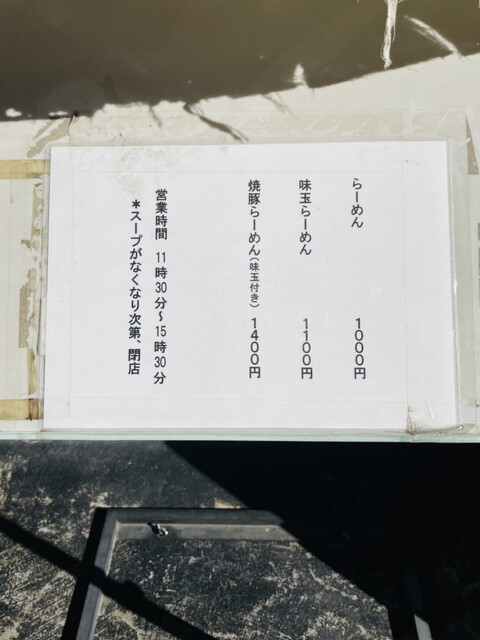 らーめん 1000円
味玉らーめん 1100円
焼豚らーめん(味玉付き) 1400円
営業時間 11時30分~15時30分
*スープがなくなり次第、閉店